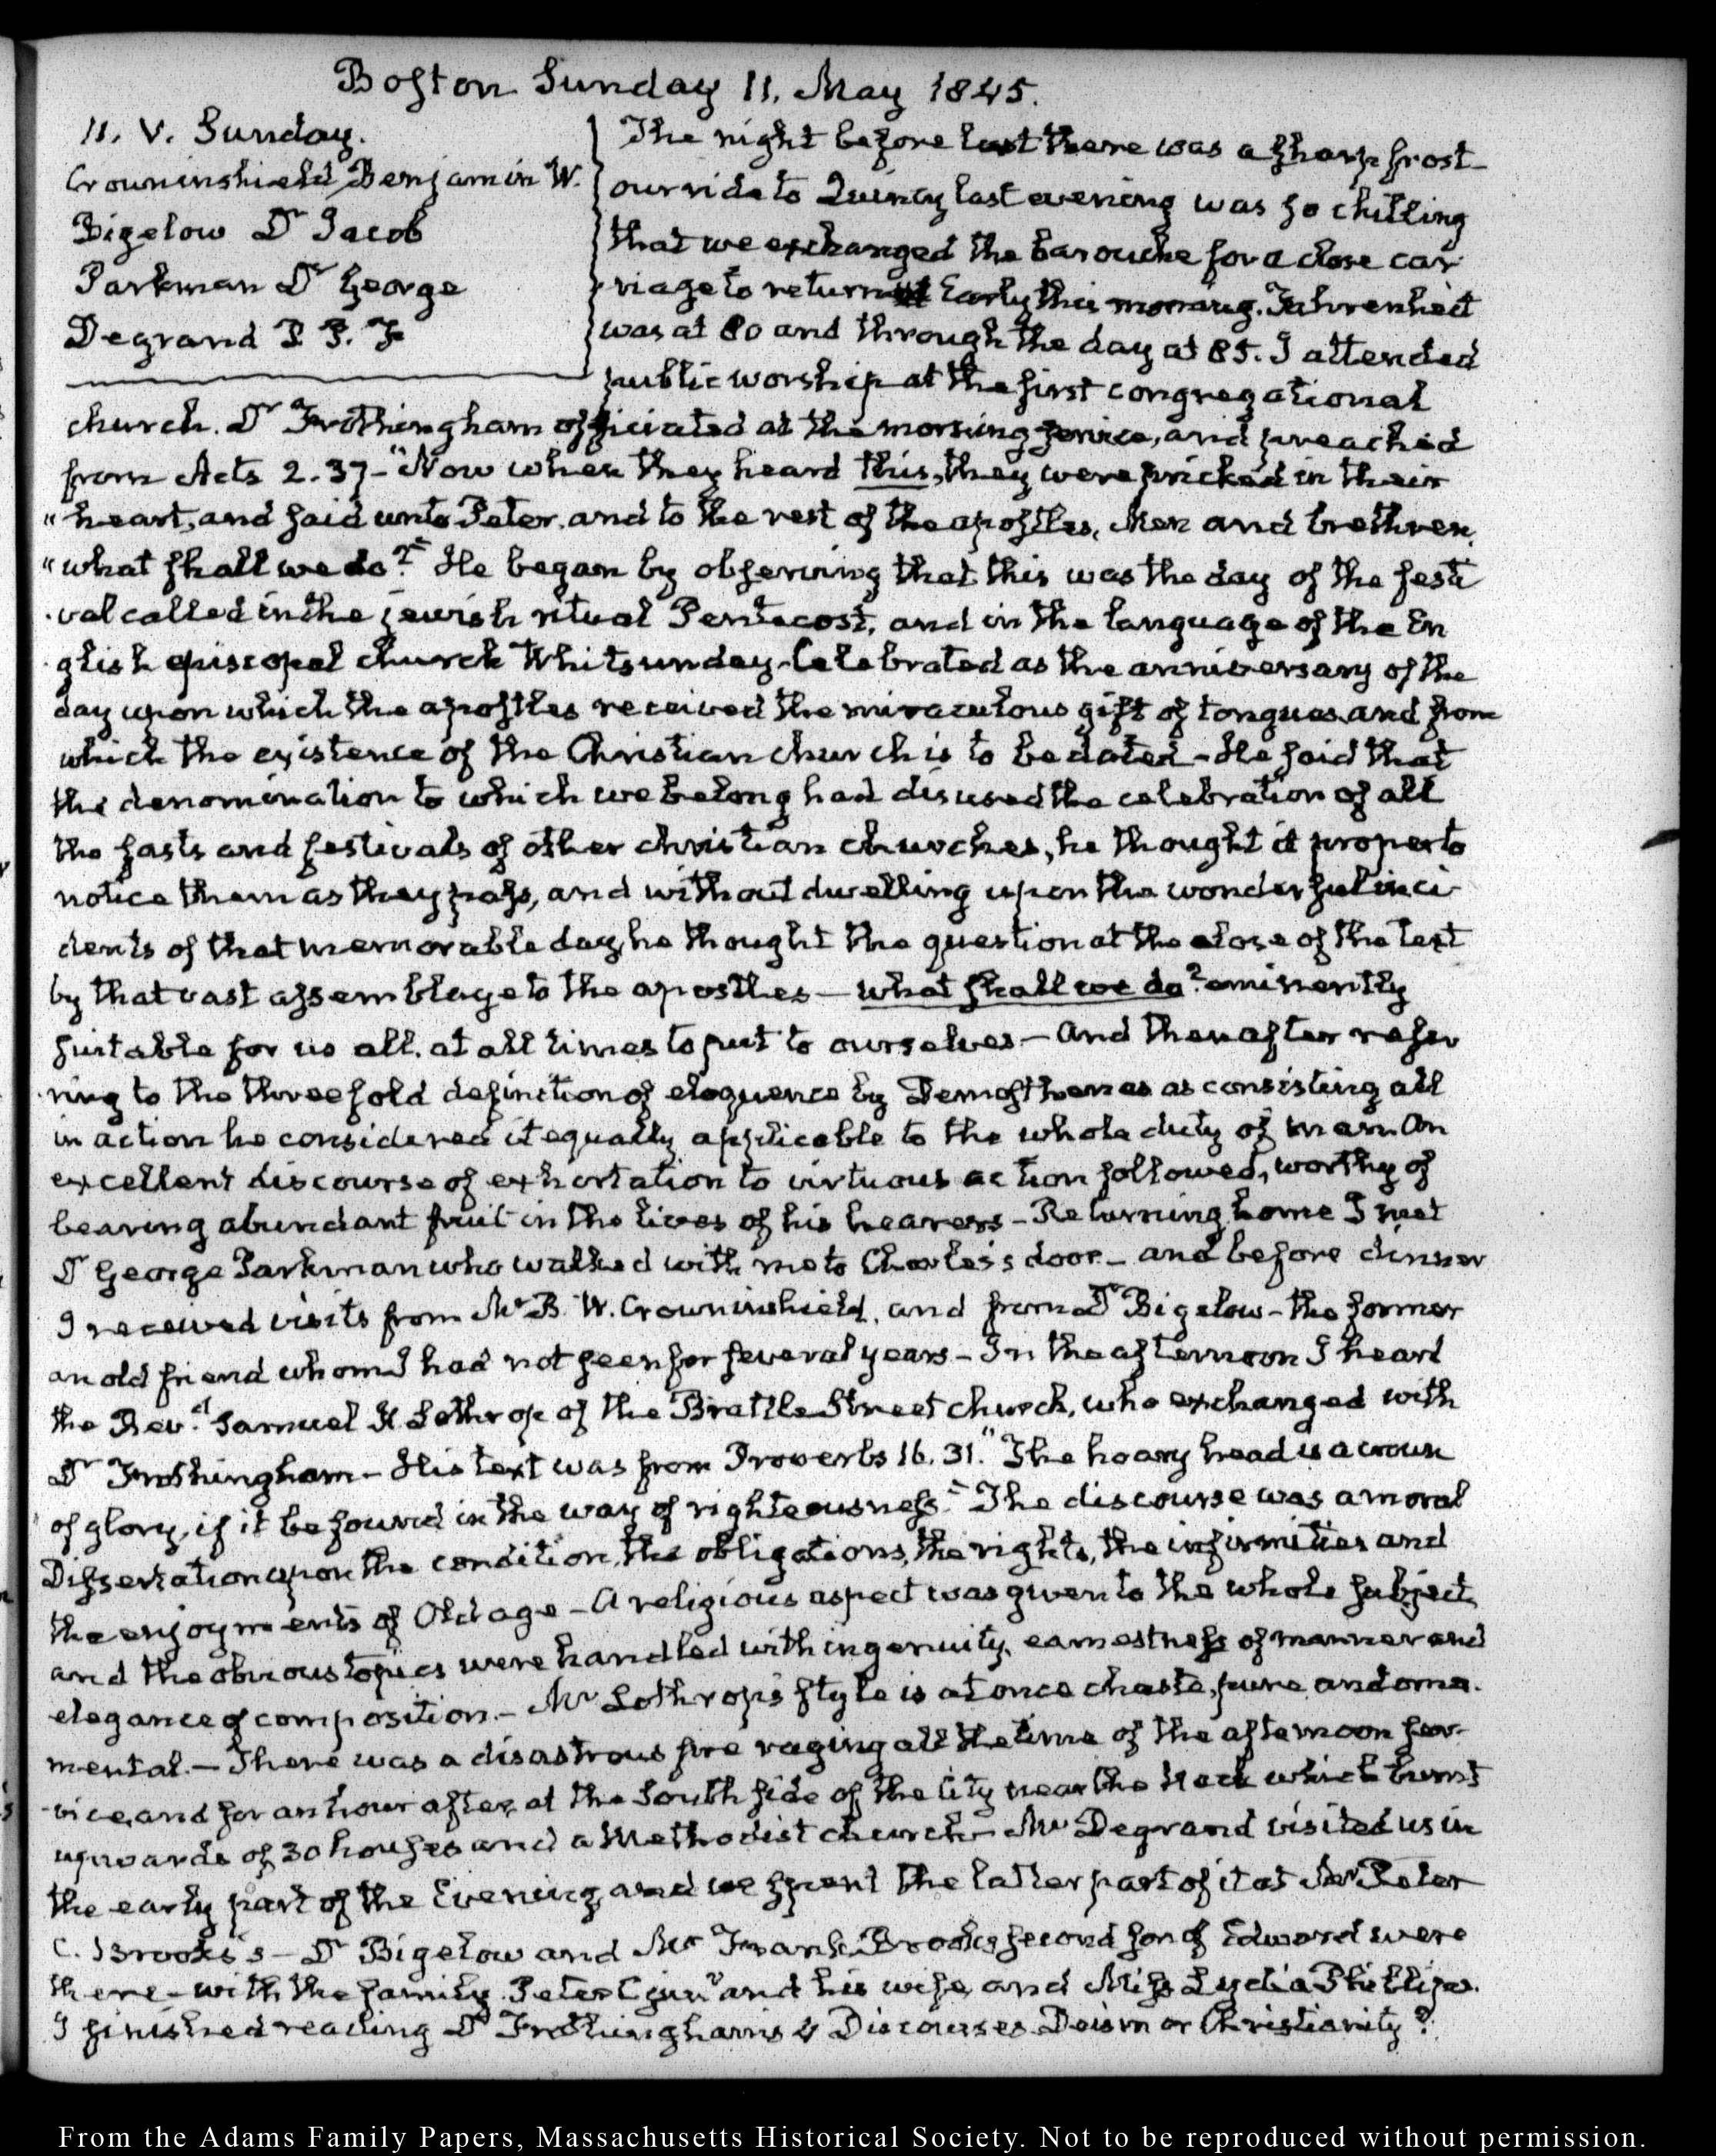 Boston Sunday 11. May 1845.
11. V. Sunday.
Crowninshield Benjamin W.
Bigelow Dr Jacob
Parkman Dr George
Degrand P. P. F
The night before last there was a sharp frost
our ride to Quincy last evening was so chilling
that we exchanged the barouche for a close car
riage to return Early this morning. Fahrenheit
was at 80 and through the day at 85. I attended
public worship at the first congregational
church. Dr Frothingham officiated at the morning service, and preached
from Acts 2. 37 - "Now when they heard this, they were pricked in their
"heart, and said unto Peter, and to the rest of the apostles, Men and brethren,
"what shall we do?" He began by observing that this was the day of the festi
val called in the jewish ritual Pentecost, and in the language of the En
glish episcopal church Whitsunday - Celebrated as the anniversary of the
day upon which the apostles received the miraculous gift of tongues and from
which the existence of the Christian church is to be dated - He said that
the denomination to which we belong had disused the celebration of all
the fasts and festivals of other christian churches, he thought it proper to
notice them as they pass, and without dwelling upon the wonderful inci
dents of that memorable day, he thought the question at the close of the text
by that vast assemblage to the apostles — what shall we do? eminently
suitable for us all, at all times to put to ourselves — And then after refer
ring to the threefold definition of eloquence by Demosthenes as consisting all
in action he considered it equally applicable to the whole duty of man. An
excellent discourse of exhortation to virtuous action followed, worthy of
bearing abundant fruit in the lives of his hearers - Returning home I met
Dr George Parkman who walked with me to Charles's door - and before dinner
I received visits from Mr B. W. Crowninshield, and from Dr Bigelow - the former
an old friend whom I had not seen for several years - In the afternoon I heard
the Revd. Samuel K Lothrop of the Brattle Street church, who exchanged with
Dr Frothingham - His text was from Proverbs 16. 31. "The hoary head is a crown
of glory, if it be found in the way of righteousness." The discourse was a moral
Dissertation upon the condition, the obligations, the rights, the infirmities and
the enjoyments of Old age - A religious aspect was given to the whole subject,
and the obvious topics were handled with ingenuity, earnestness of manner and
elegance of composition. - Mr Lothrop's style is at once chaste, pure and orna
mental. — There was a disastrous fire raging all the time of the afternoon ser
vice, and for an hour after, at the South side of the City near the Neck which burnt
upwards of 30 houses and a Methodist church - Mr Degrand visited us in
the early part of the Evening, and we spent the latter part of it at Mr Peter
C. Brooks's - Dr Bigelow and Mr Frank Brooks second son of Edward were
there - with the family Peter C junr and his wife, and Miss Lydia Phillips.
I finished reading Dr Frothingham's 4 Discourses Deism or Christianity?
From the Adams Family Papers, Massachusetts Historical Society. Not to be reproduced without permission.